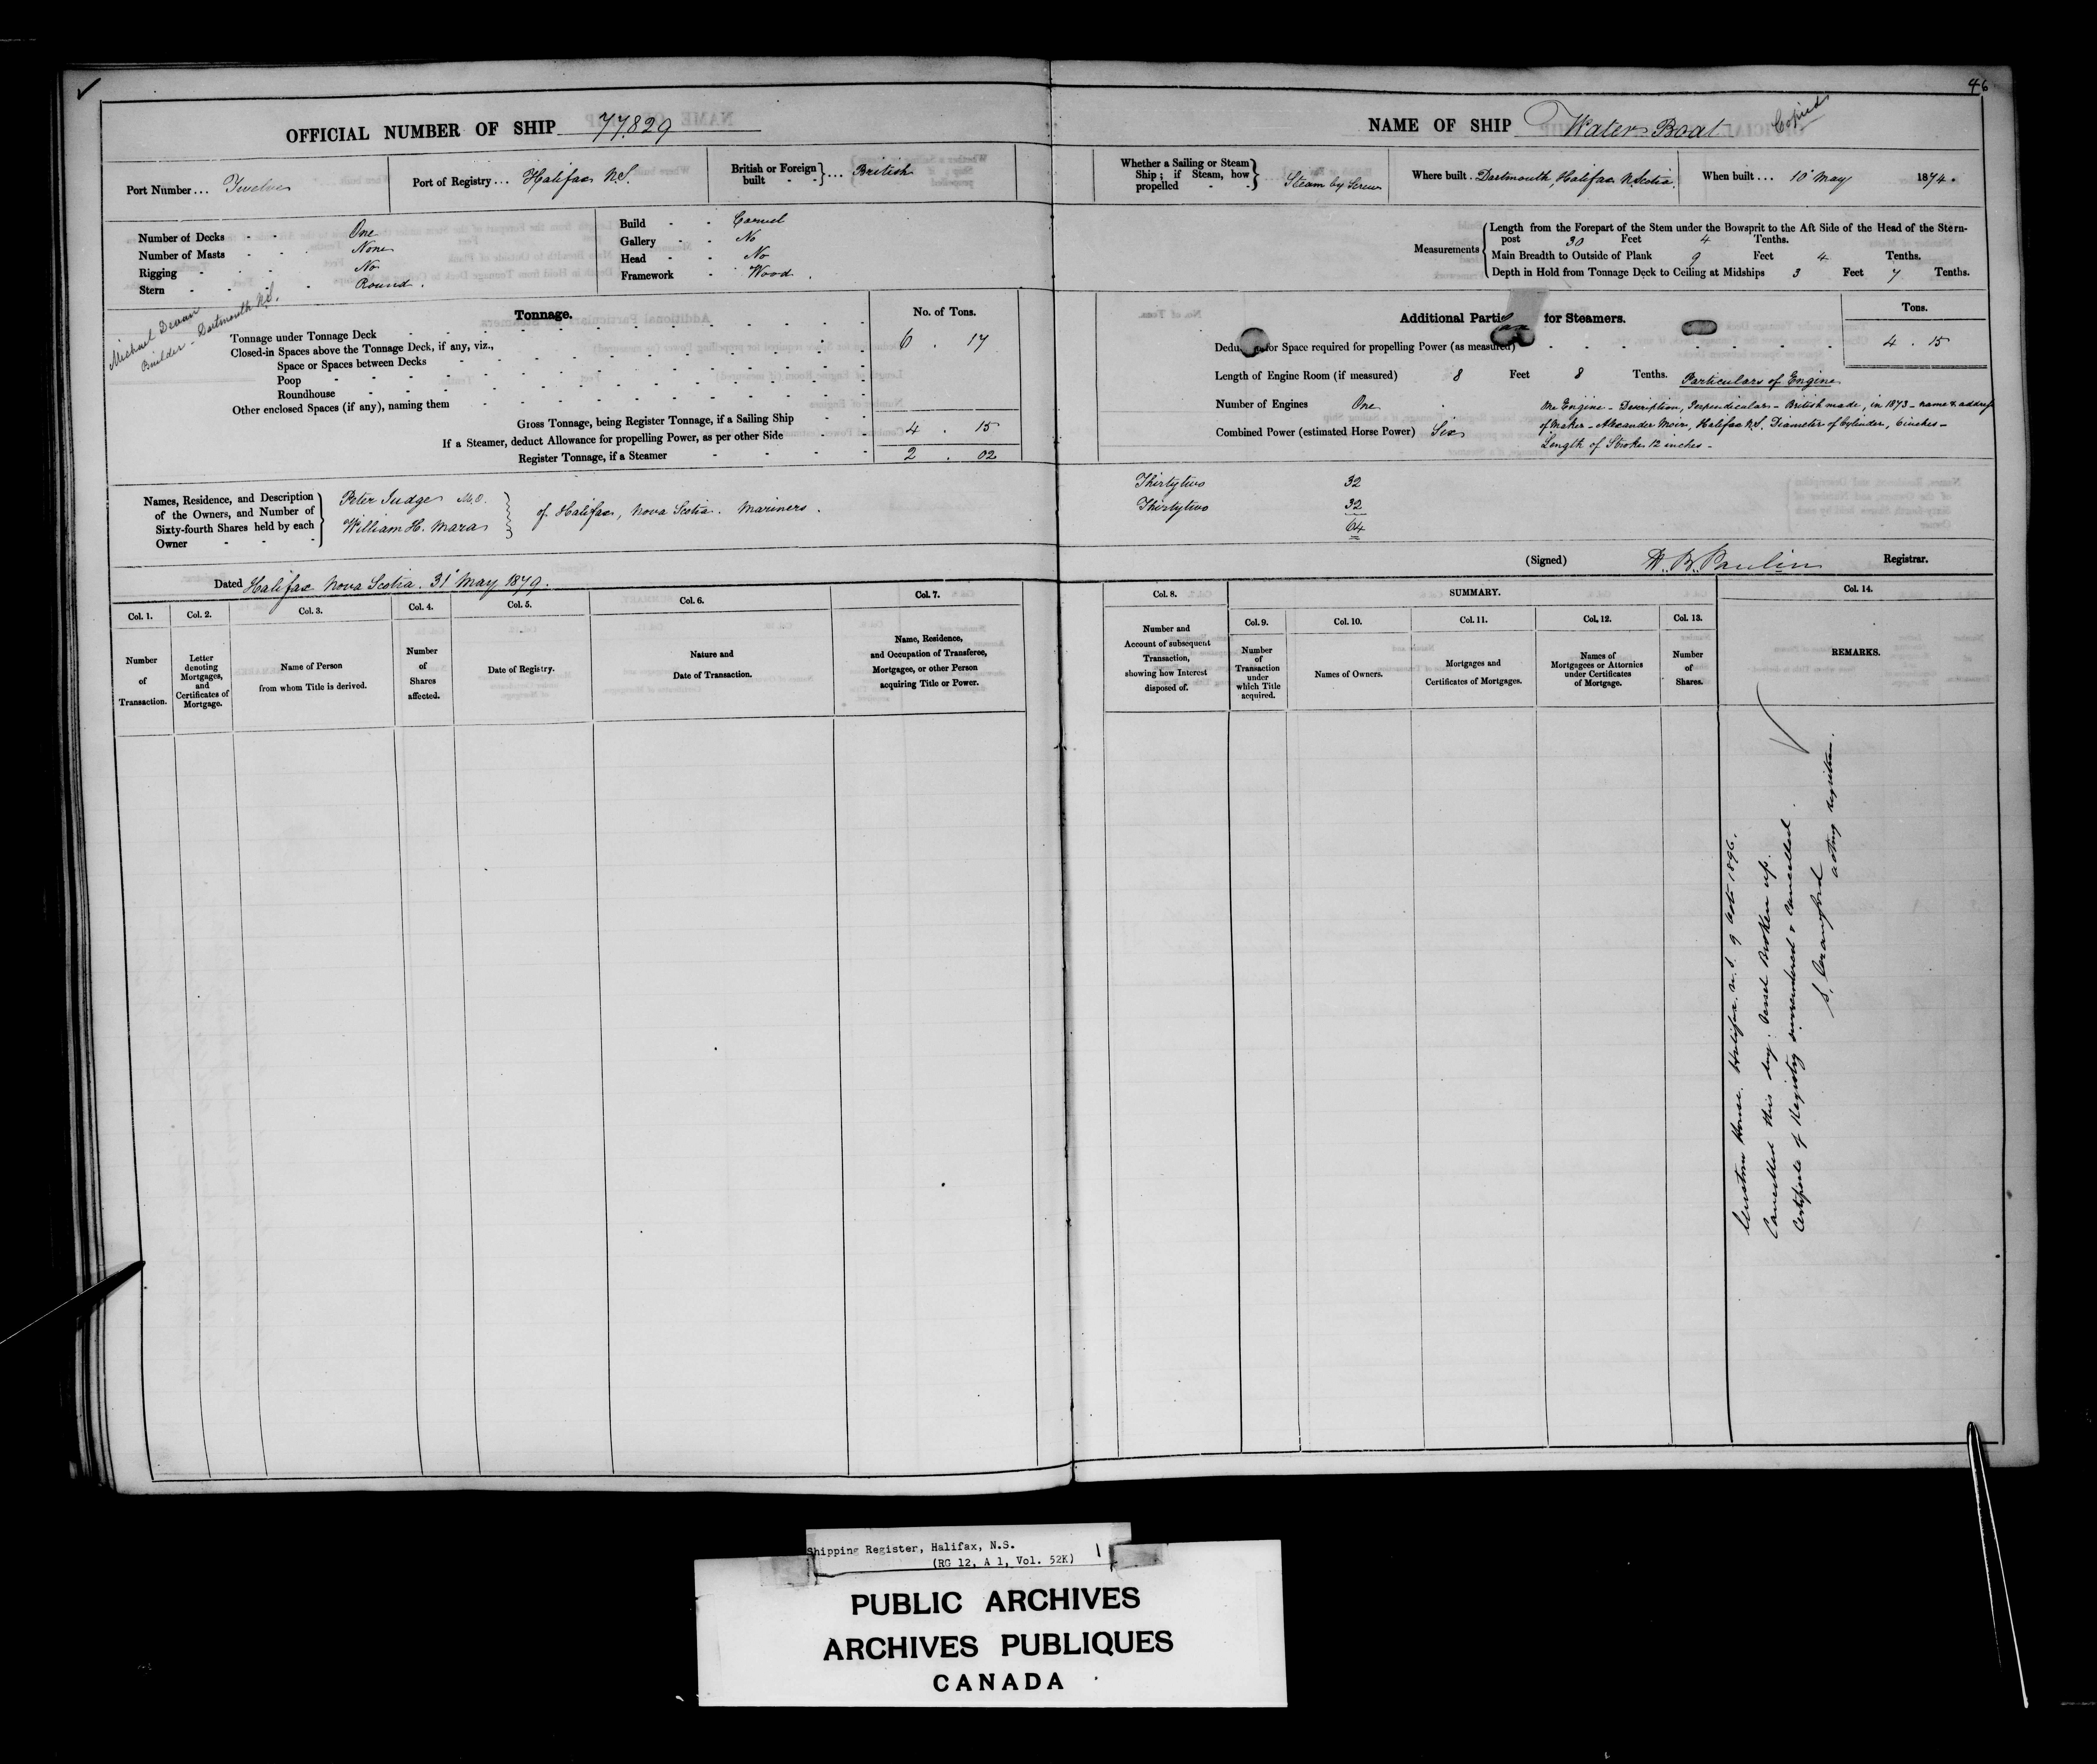 46
OFFICIAL NUMBER OF SHIP 77.829
NAME OF SHIP Water Boat
Copied
Port Number ... Twelve
Port of Registry ... Halifax N.S.
British or Foreign built } ... British
Whether a Sailing or Steam Ship; if Steam, how propelled } Steam by Screw
Where built. Dartmouth, Halifax N. Scotia.
When built ... 10 May 1874.
Number of Decks - - One
Number of Masts - - None
Rigging - - - No
Stern - - - Round.
Build - - Carvel
Gallery - - No
Head - - No
Framework - Wood.
Measurements { Length from the Forepart of the Stem under the Bowsprit to the Aft Side of the Head of the Stern-
post 30 Feet 4 Tenths.
Main Breadth to Outside of Plank 9 Feet 4 Tenths.
Depth in Hold from Tonnage Deck to Ceiling at Midships 3 Feet 7 Tenths.
Michael
Builder - Dartmouth N.S.
Tonnage.
No. of Tons.
Tonnage under Tonnage Deck
6 . 17
Closed-in Spaces above the Tonnage Deck, if any, viz.,
Space or Spaces between Decks
Poop
Roundhouse
Other enclosed Spaces (if any), naming them
Gross Tonnage, being Register Tonnage, if a Sailing Ship
If a Steamer, deduct Allowance for propelling Power, as per other Side
4 . 15
Register Tonnage, if a Steamer
2 . 02
Additional Parti for Steamers.
Tons.
Dedu for Space required for propelling Power (as measured)
4 . 15
Length of Engine Room (if measured) 8 Feet 8 Tenths.
Particulars of Engine
Number of Engines One
Combined Power (estimated Horse Power) Six
One Engine - Description, Perpendicular - British made, in 1873 - name & address
of Maker - Alexander Moir, Halifax N.S. Diameter of Cylinder, 6 inches -
Length of Stroke 12 inches -
Names, Residence, and Description of the Owners, and Number of Sixty-fourth Shares held by each Owner
Peter Judge M.O.
William H. Mara
of Halifax, Nova Scotia. Mariners.
Thirtytwo 32
Thirtytwo 32
64
Dated Halifax Nova Scotia. 31 May 1879.
(Signed) W. B. Paulin Registrar.
Col. 1.
Number of Transaction.
Col. 2.
Letter denoting Mortgages, and Certificates of Mortgage.
Col. 3.
Name of Person from whom Title is derived.
Col. 4.
Number of Shares affected.
Col. 5.
Date of Registry.
Col. 6.
Nature and Date of Transaction.
Col. 7.
Name, Residence, and Occupation of Transferee, Mortgagee, or other Person acquiring Title or Power.
Col. 8.
Number and Account of subsequent Transaction, showing how Interest disposed of.
SUMMARY.
Col. 9.
Number of Transaction under which Title acquired.
Col. 10.
Names of Owners.
Col. 11.
Mortgages and Certificates of Mortgages.
Col. 12.
Names of Mortgagees or Attornies under Certificates of Mortgage.
Col. 13.
Number of Shares.
Col. 14.
REMARKS.
Custom House. Halifax. N.S. 9 Octr 1896.
Cancelled this day. Vessel Broken up.
Certificate of Registry surrendered & Cancelled.
S. Crawford
acting Registrar.
Shipping Register, Halifax, N.S.
(RG 12, A 1, Vol. 52K)
PUBLIC ARCHIVES
ARCHIVES PUBLIQUES
CANADA